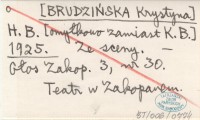 [BRUDZIŃSKA Krystyna]
H.B. [omyłkowo zamiast K.B.]
1925. Ze sceny. –
Głos Zakop. 3, nr 30.
Teatr w Zakopanem.